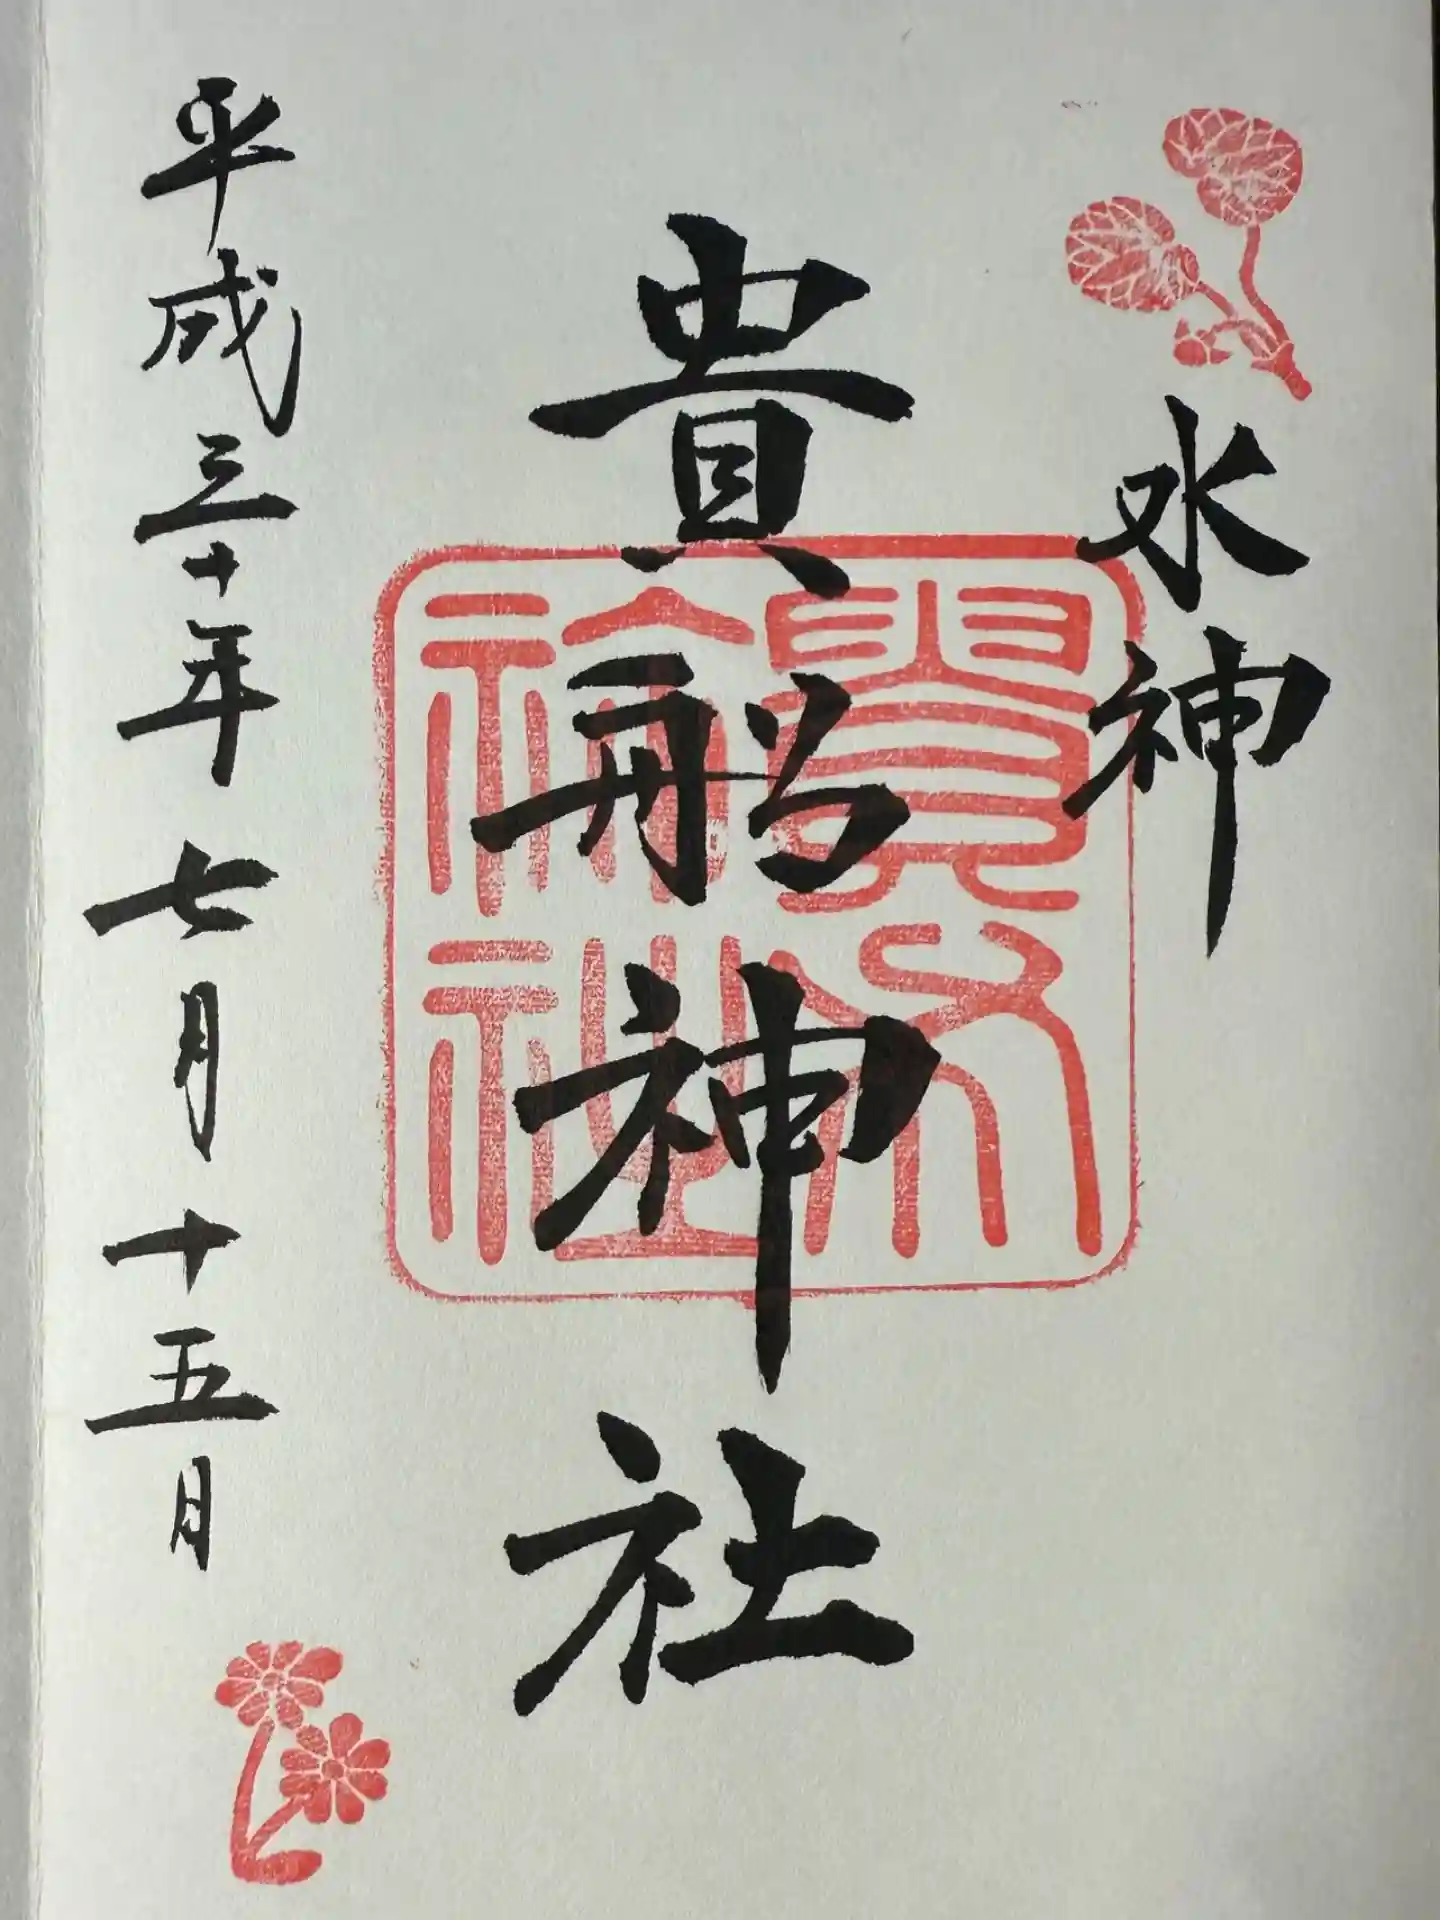 水神
貴船神社
平成三十年七月十五日